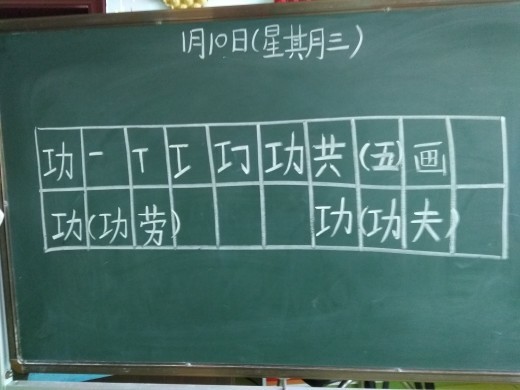 1月10日(星期三)
功 一 丅 工 工𠃌 功 共(五)画
功(功劳) 功(功夫)